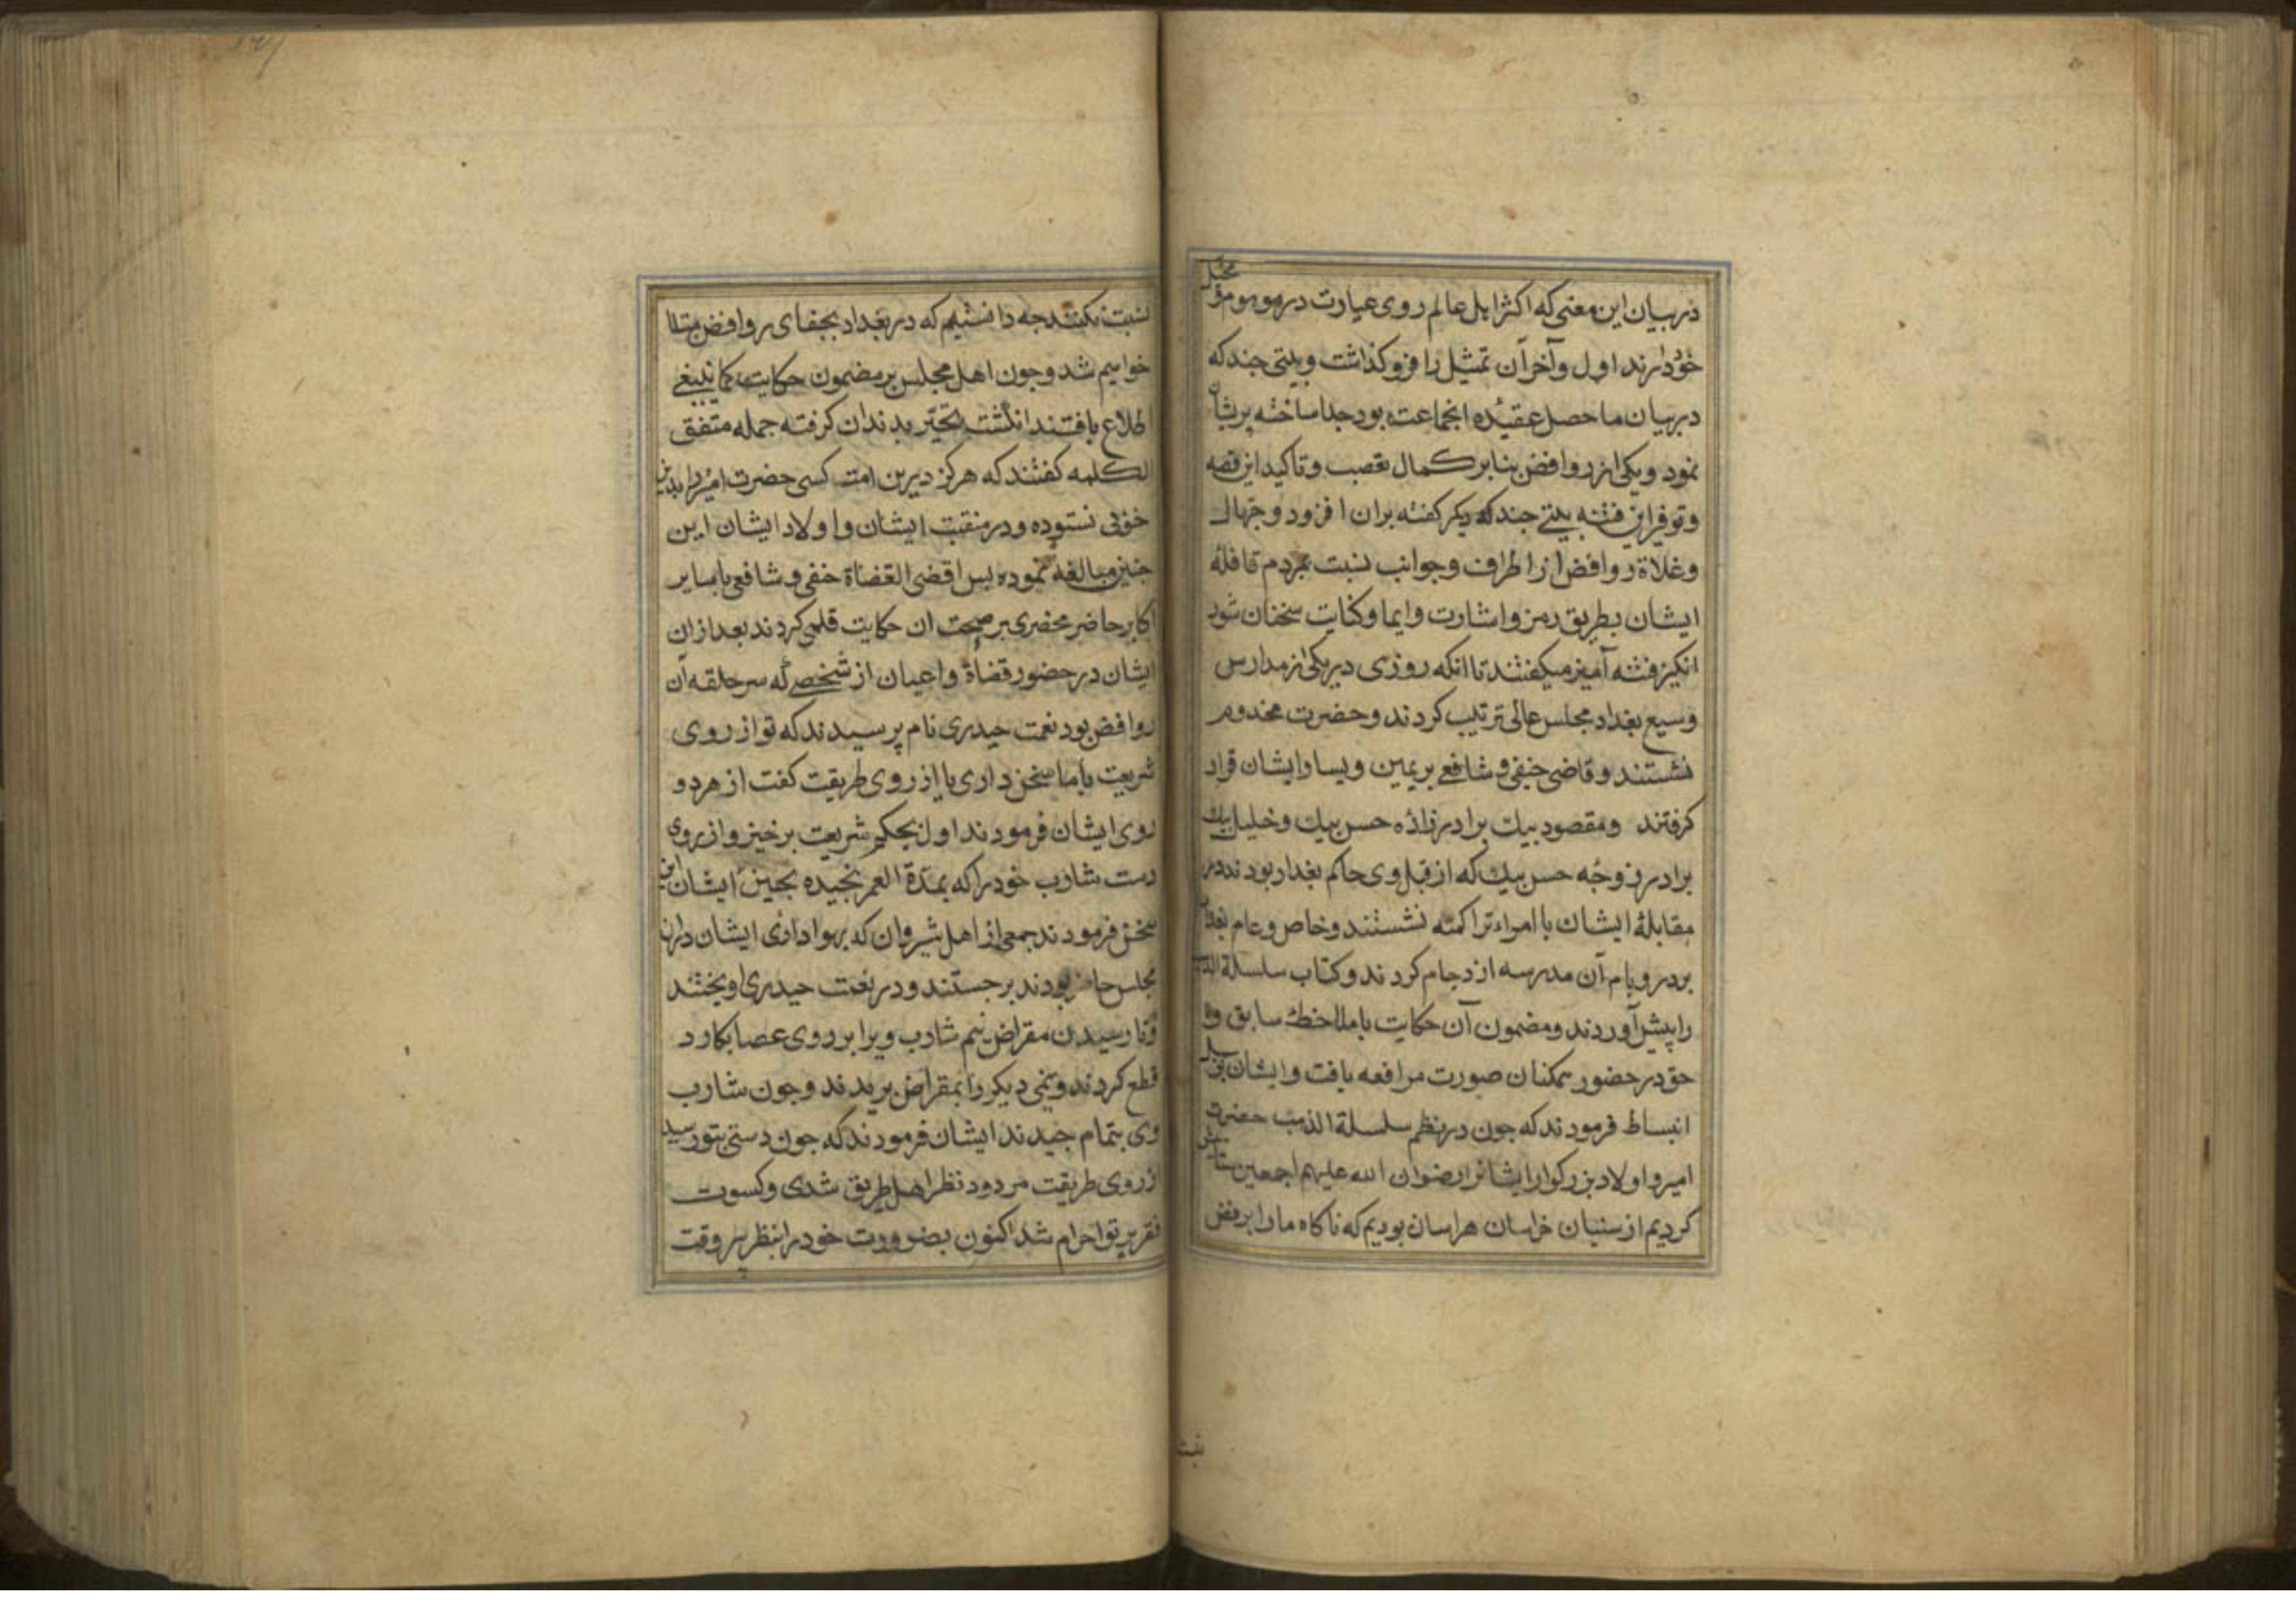 در بیان این معنی که اکثر اهل عالم روی عبارت در موهوم و مخیّل
خود دارند اول و آخر آن تمثیل را فرو کذاشت و بیتی جند که
در بیان ما حصل عقیده انجماعت بود جدا ساخته پریشان
نمود و یکی از روافض بنابر کمال تعصب و تاکید این قصه
و توفیر این فتنه بیتی جند دیکر کفته بران افزود و جهال
و غلاة روافض از اطراف و جوانب نسبت بمردم قافلهٔ
ایشان بطریق رمز و اشارت و ایما و کنایت سخنان شور
انکیز فتنه آمیز میکفتند تا انکه روزی در یکی از مدارس
وسیع بغداد مجلس عالی ترتیب کردند و حضرت مخدوم
نشستند و قاضی حنفی و شافعی بر یمین و یسار ایشان قرار
کرفتند و مقصود بیك برادر زاده حسن بیك و خلیل بیك
برادر زوجه حسن بیك که از قبل وی حاکم بغداد بودند در
مقابلهٔ ایشان با امراء تراکمه نشستند و خاص و عام بغداد
بر در و بام آن مدرسه ازدحام کردند و کتاب سلسلة الذهب
را پیش آوردند و مضمون آن حکایت با ملاحظهٔ سابق و لا
حق در حضور همکنان صورت مرافعه یافت و ایشان بر سبیل
انبساط فرمودند که جون در نظم سلسلة الذهب حضرت
امیر و اولاد بزرکوار ایشانرا رضوان الله علیهم اجمعین ستایش
کردیم از سنیان خراسان هراسان بودیم که ناکاه ما را برفض
نسبت
نسبت نکنند جه دانستیم که در بغداد بجفای روافض مبتلا
خواهیم شد و جون اهل مجلس بر مضمون حکایت کما ینبغی
اطلاع یافتند انکشت تحیّر بدندان کرفته جمله متفق
الکلمه کفتند که هرکز درین امت کسی حضرت امیر را بدین
خوبی نستوده و در منقبت ایشان و اولاد ایشان این
جنین مبالغه ننموده بس اقضی القضاة حنفی و شافعی با سایر
اکابر حاضر محضری بر صحت ان حکایت قلمی کردند بعد ازان
ایشان در حضور قضاة و اعیان از شخصی که سر حلقه آن
روافض بود نعمت حیدری نام پرسیدند که تو از روی
شریعت با ما سخن داری یا از روی طریقت کفت از هر دو
روی ایشان فرمودند اول بحکم شریعت برخیز و از روی
دست شارب خود را که بمدة العمر نجیده بجین ایشان این
سخن فرمودند جمعی از اهل شیروان که بهواداری ایشان دران
مجلس حاضر بودند برجستند و در نعمت حیدری اویختند
و تا رسیدن مقراض نیم شارب ویرا بر روی عصا بکارد
قطع کردند و نیمی دیکر را بمقراض بریدند و جون شارب
وی بتمام جیدند ایشان فرمودند که جون دستی بتو رسید
از روی طریقت مردود نظر اهل طریق شدی و کسوت
فقر بر تو احرام شد اکنون بضرورت خود را بنظر پیر وقت